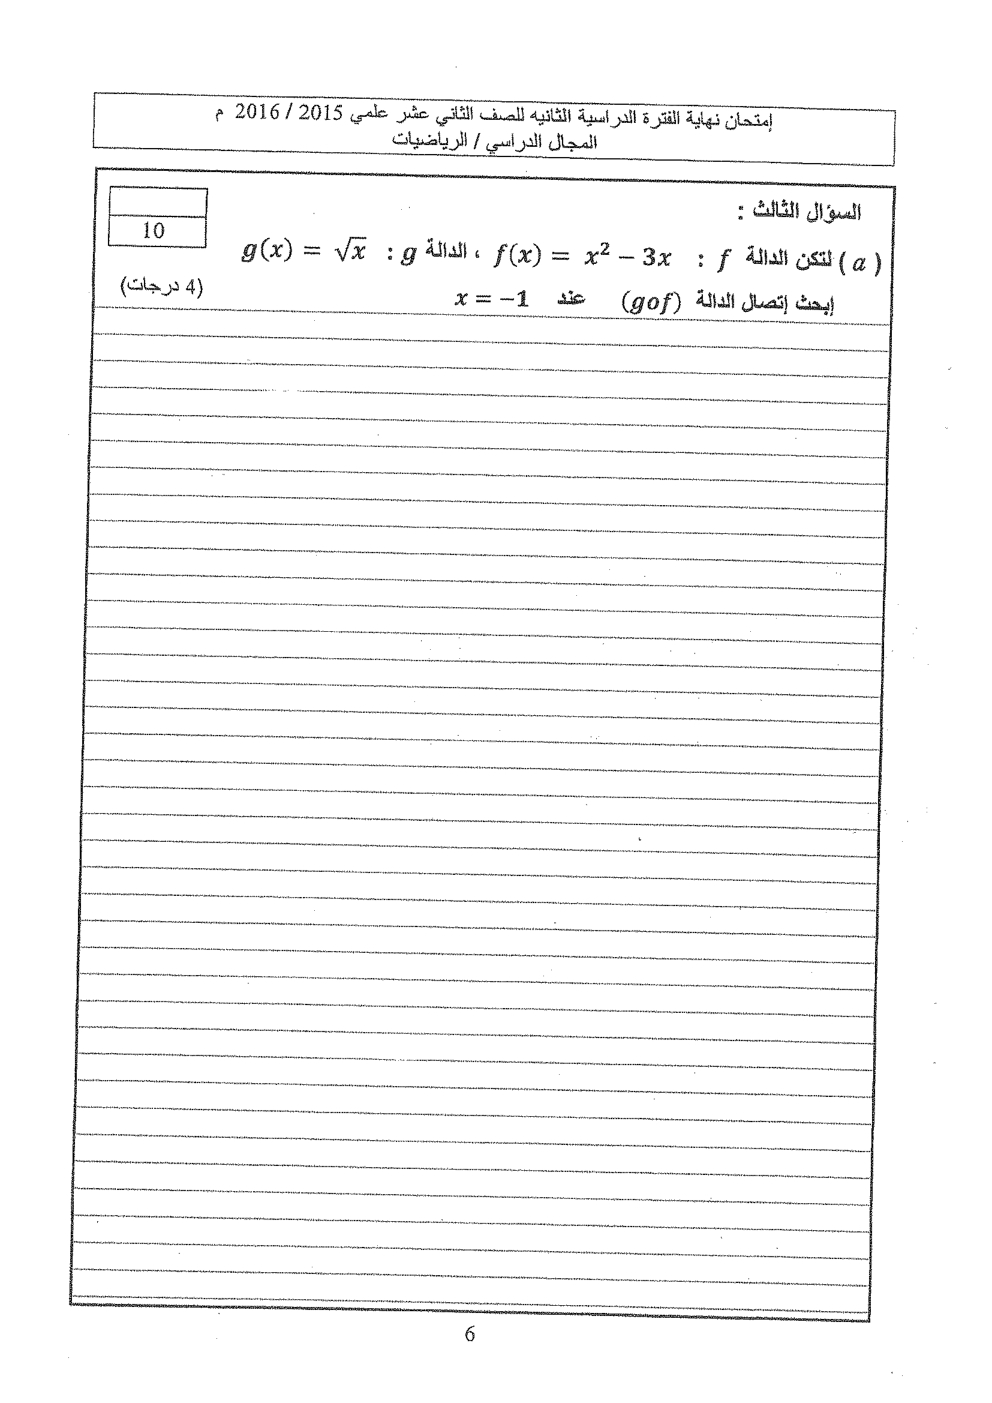 إمتحان نهاية الفترة الدراسية الثانيه للصف الثاني عشر علمي 2015 / 2016 م
المجال الدراسي / الرياضيات
السؤال الثالث :
10
( a ) لتكن الدالة f : f(x) = x² − 3x ، الدالة g : g(x) = √x
إبحث إتصال الدالة (gof) عند x = −1
(4 درجات)
6